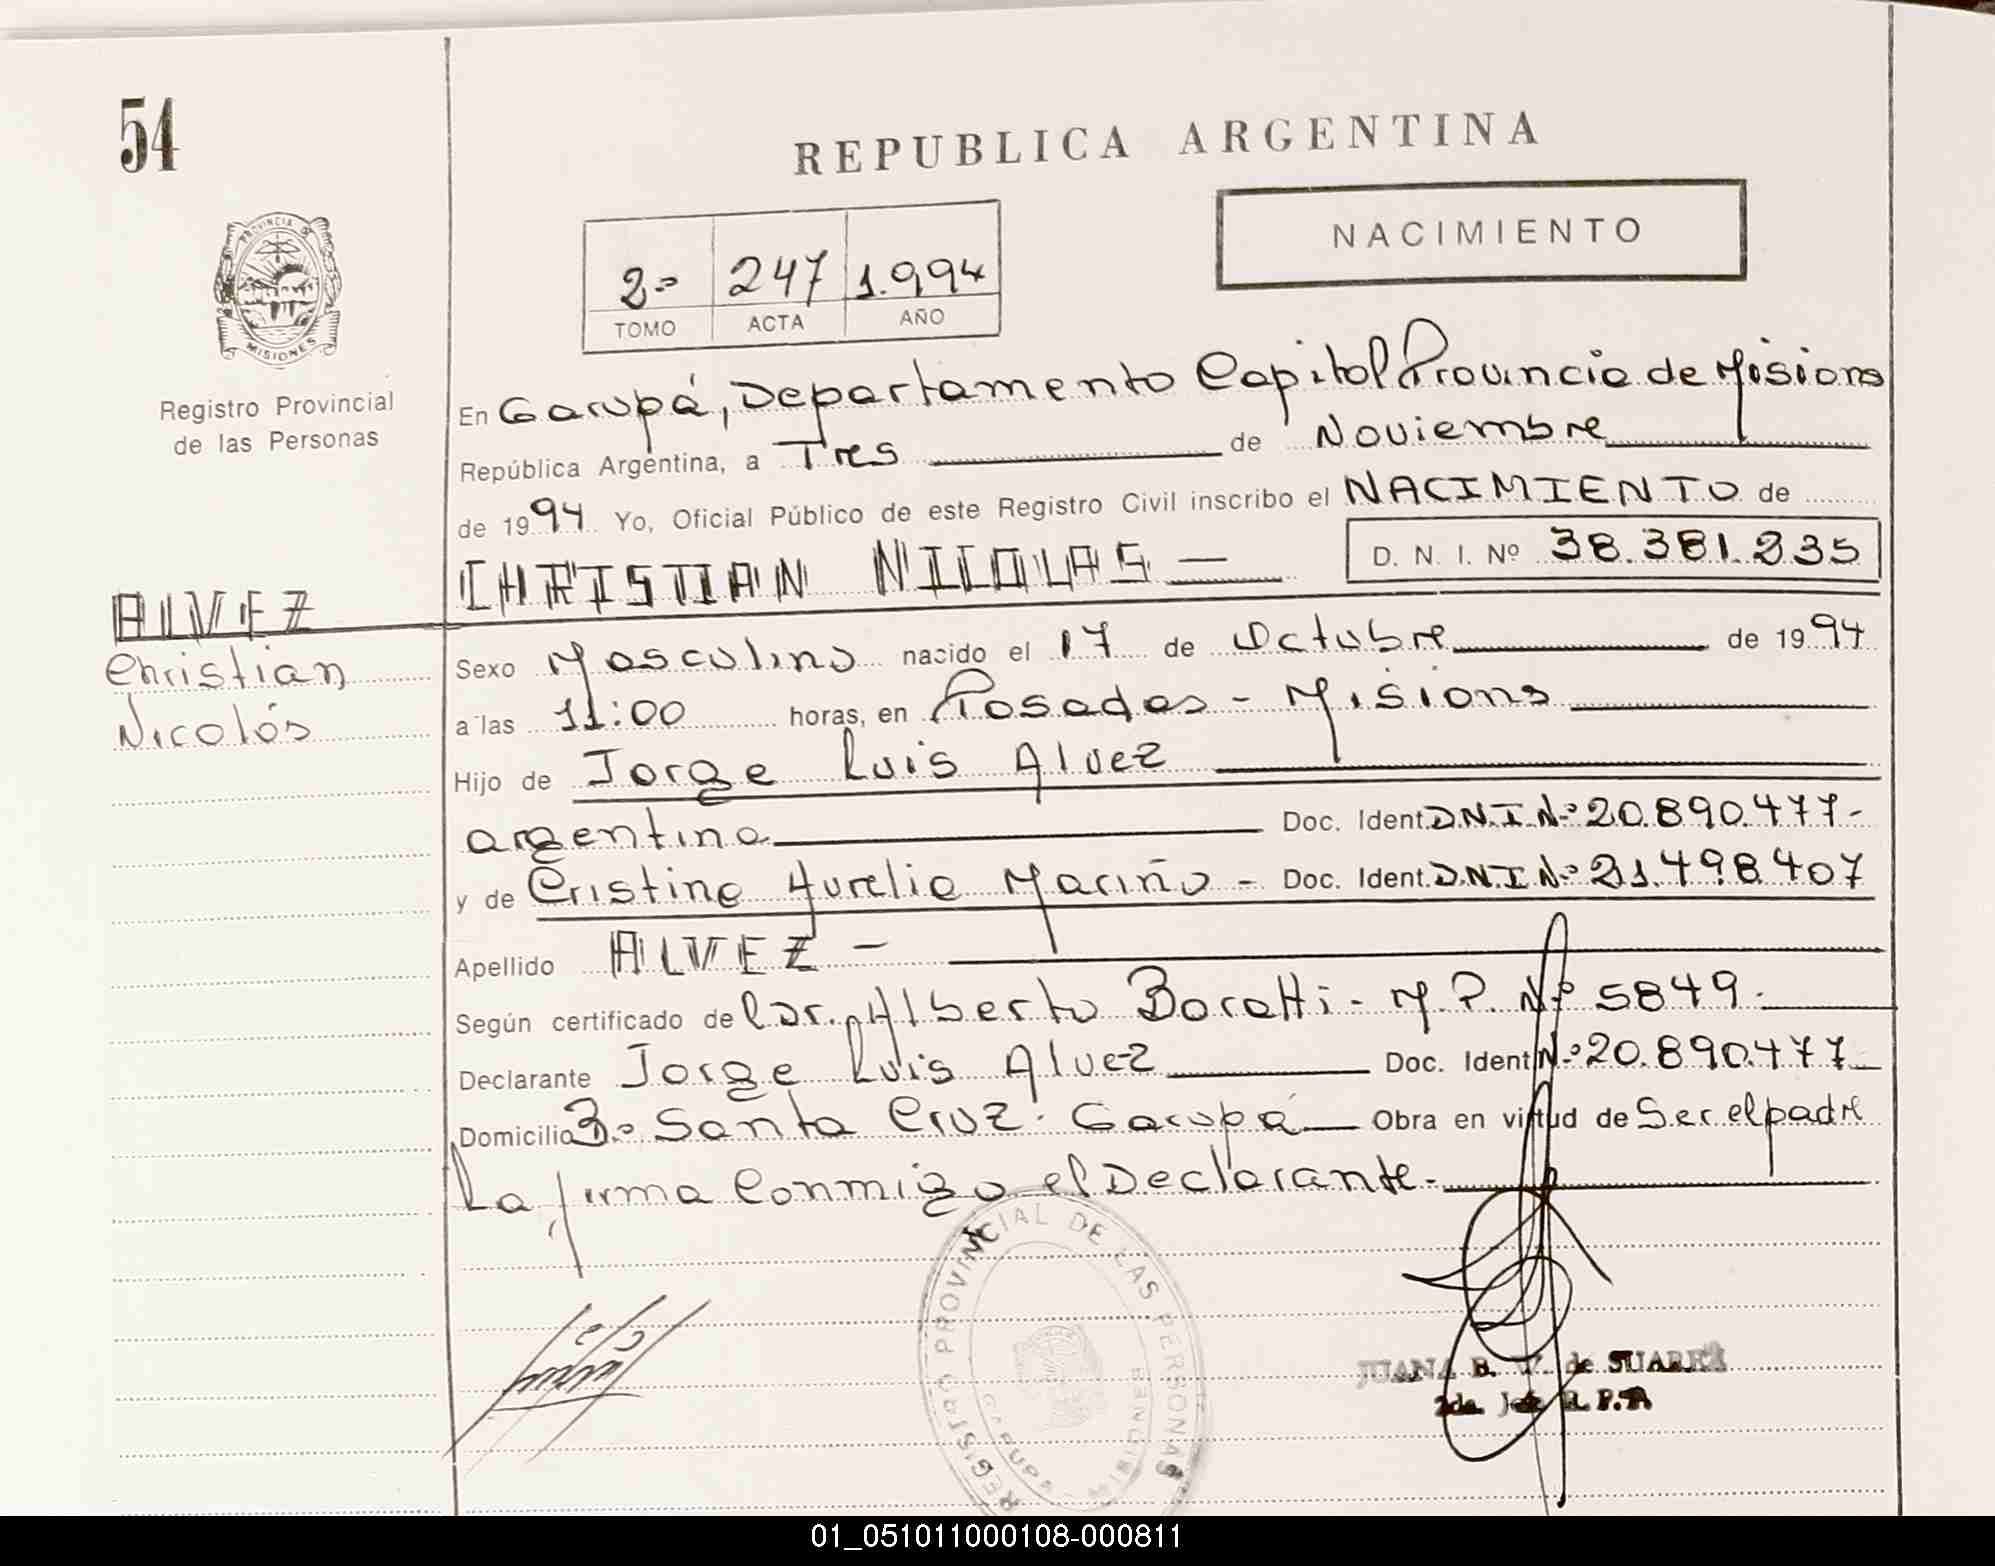 54
REPUBLICA ARGENTINA
NACIMIENTO
2º 247 1.994
TOMO ACTA AÑO
PROVINCIA DE
MISIONES
Registro Provincial
de las Personas
En Garupá, Departamento Capital Provincia de Misiones
República Argentina, a Tres de Noviembre
de 1994 Yo, Oficial Público de este Registro Civil inscribo el NACIMIENTO de
CHRISTIAN NICOLAS — D. N. I. Nº 38.381.235
ALVEZ
Christian
Nicolás
Sexo Masculino nacido el 17 de Octubre de 1994
a las 11:00 horas, en Posadas - Misiones
Hijo de Jorge Luis Alvez
argentina Doc. Ident. D.N.I. Nº 20.890.477-
y de Cristina Aurelia Mariño - Doc. Ident. D.N.I. Nº 21.498.407
Apellido ALVEZ -
Según certificado del Dr. Alberto Boratti - M.P. Nº 5849.
Declarante Jorge Luis Alvez Doc. Ident Nº 20.890.477-
Domicilio Bº Santa Cruz - Garupá Obra en virtud de Ser el padre
La firma Conmigo el Declarante.-
REGISTRO PROVINCIAL DE LAS PERSONAS
GARUPA - MISIONES
JUANA B. V. de SUAREZ
2da. Jefe R.P.P.
01_051011000108-000811